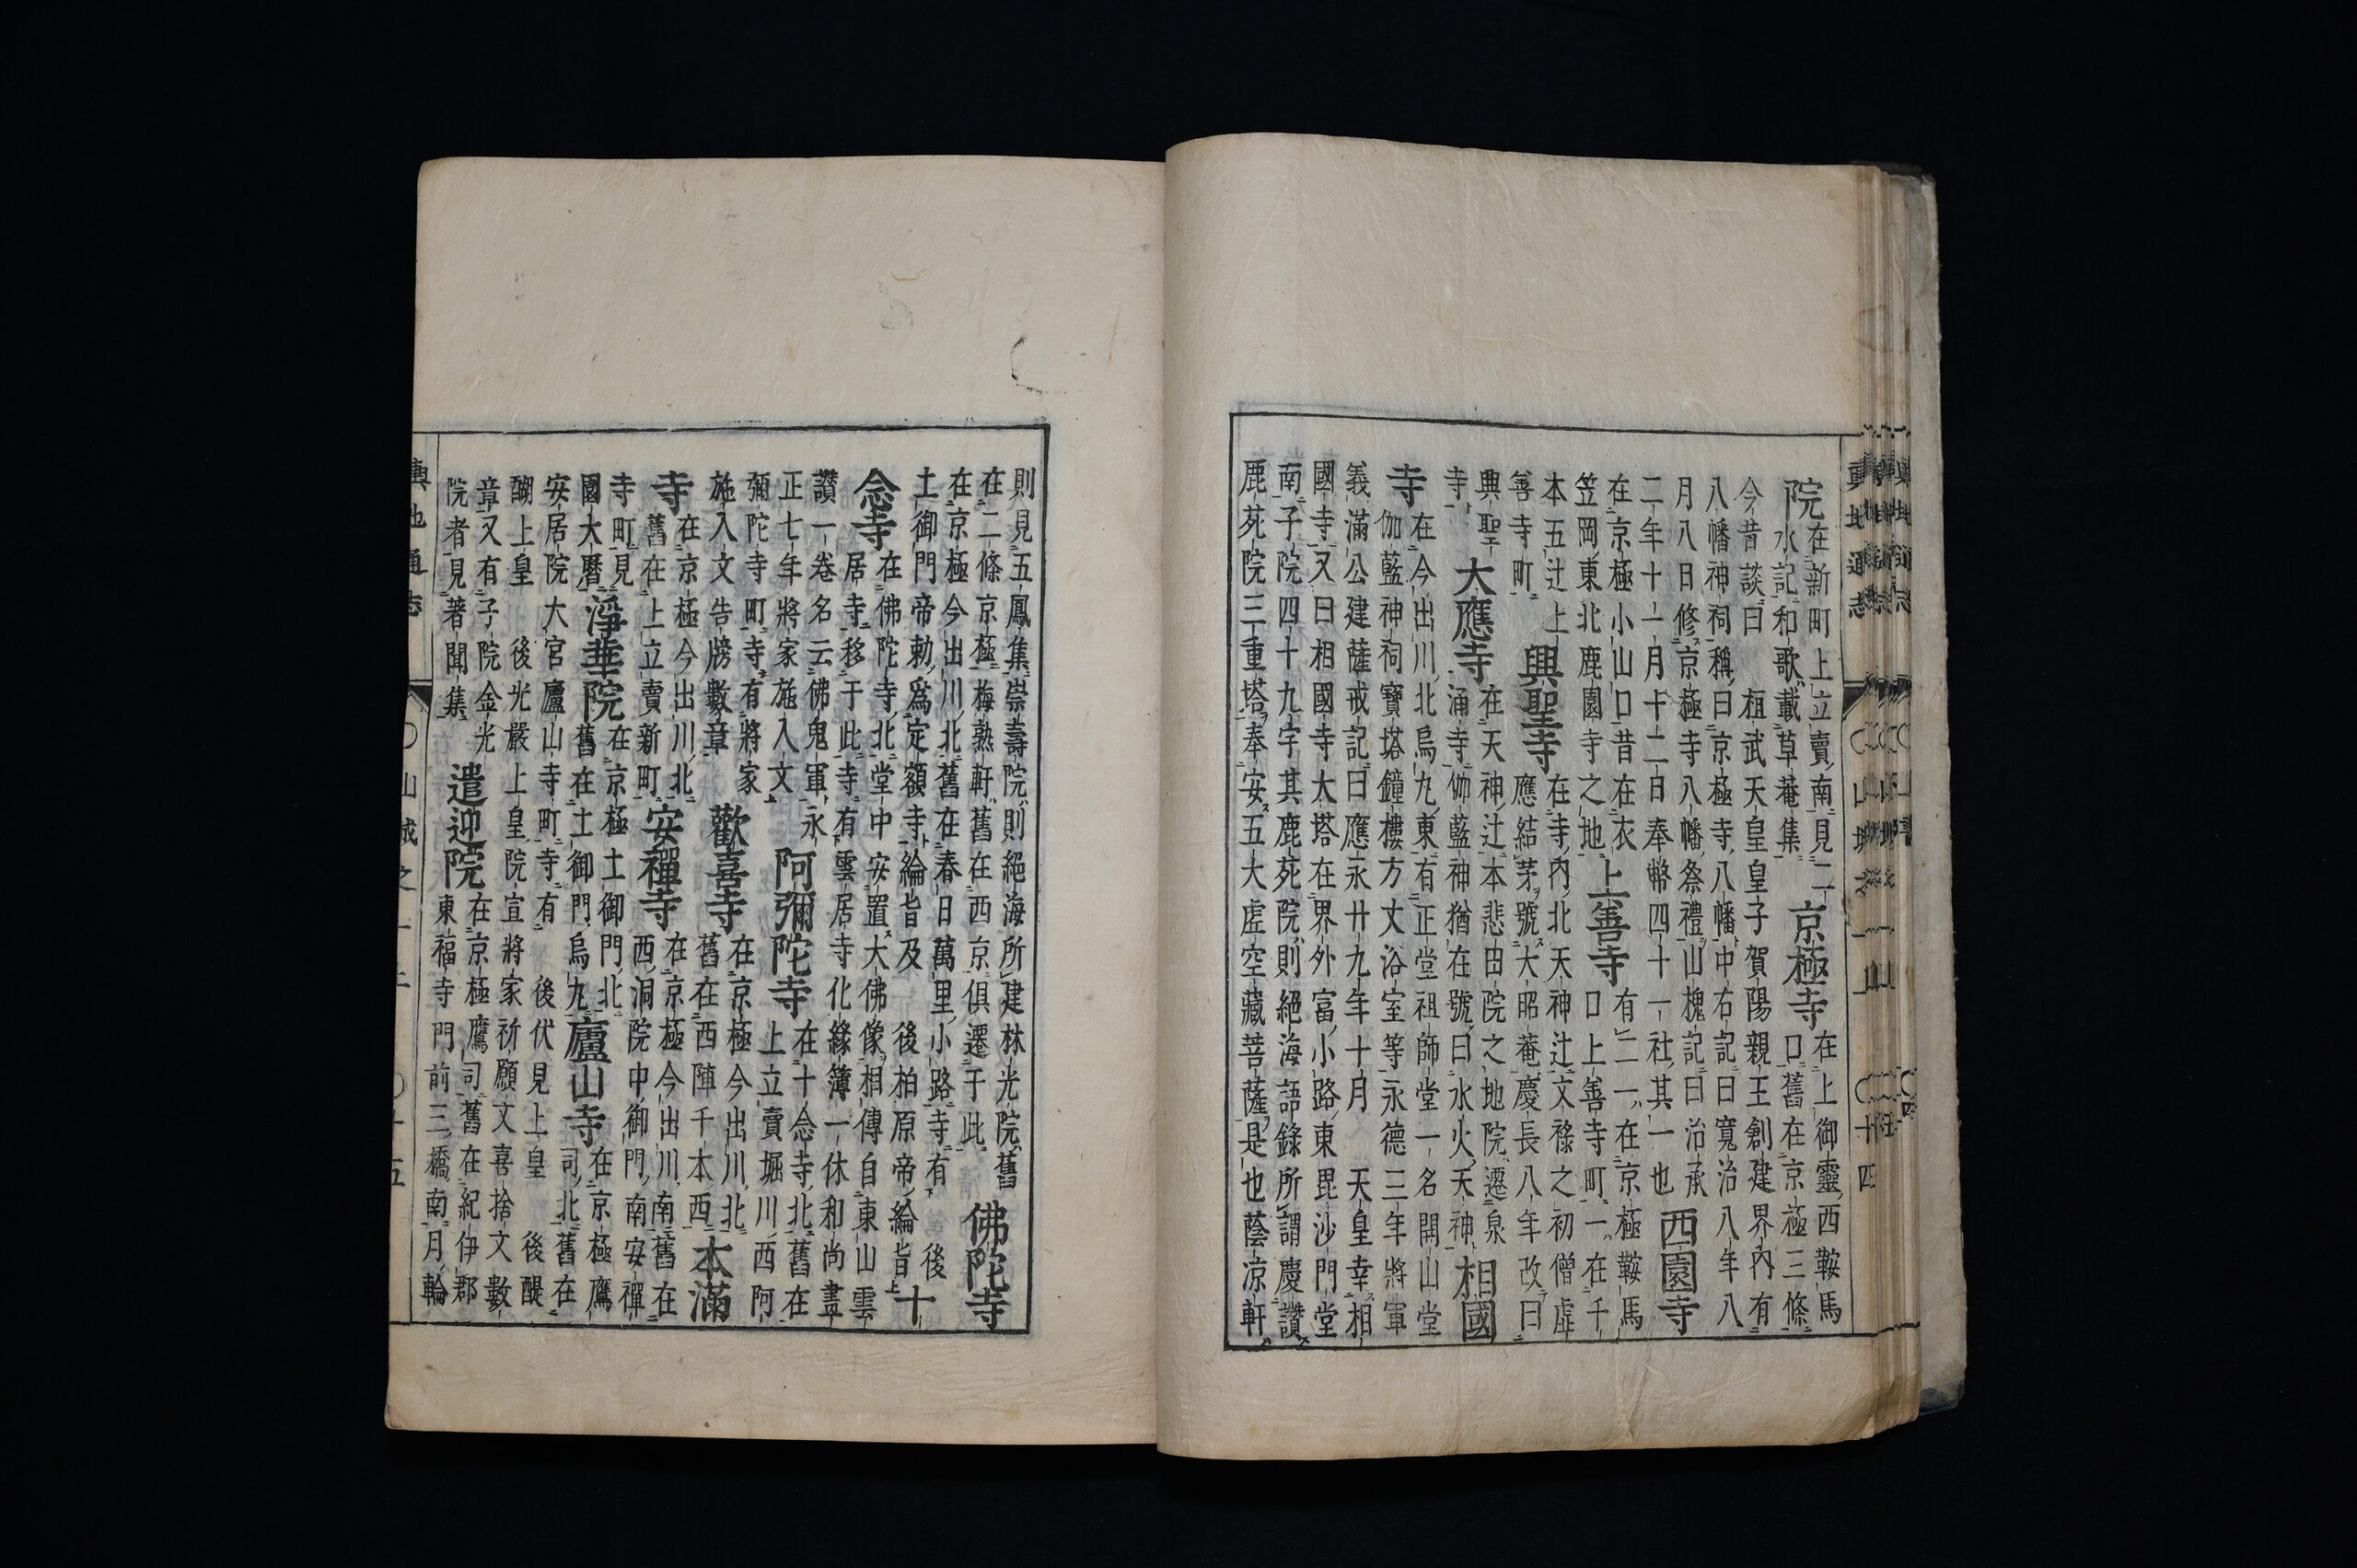 院在新町上立賣南見二
水記和歌載草菴集
京極寺在上御靈西鞍馬
口舊在京極三條
今昔談曰 桓武天皇皇子賀陽親王創建界内有
八幡神祠稱曰京極寺八幡中右記曰寬治八年八
月八日修京極寺八幡祭禮山槐記曰治承
二年十一月十二日奉幣四十一社其一也
西園寺
在京極小山口昔在衣
笠岡東北鹿園寺之地
上善寺有二一在京極鞍馬
口上善寺町一在千
本五辻上
善寺町
興聖寺在寺内北天神辻文祿之初僧虛
應結茅號大昭菴慶長八年改曰
興聖
寺
大應寺在天神辻本悲田院之地院遷泉
涌寺伽藍神猶在號曰水火天神
相國
寺在今出川北烏丸東有正堂祖師堂一名開山堂
伽藍神祠寶塔鐘樓方丈浴室等永德三年將軍
義滿公建薩戒記曰應永廿九年十月 天皇幸相
國寺又曰相國寺大塔在界外富小路東毘沙門堂
南子院四十九宇其鹿苑院則絕海語錄所謂慶讚
鹿苑院三重塔奉安五大虛空藏菩薩是也蔭凉軒
輿地通志
十四
則見五鳳集崇壽院則絕海所建林光院舊
在二條京極梅熟軒舊在西京俱遷于此
佛陀寺
在京極今出川北舊在春日萬里小路寺有 後
土御門帝勅爲定額寺綸旨及 後柏原帝綸旨
十
念寺在佛陀寺北堂中安置大佛像相傳自東山雲
居寺移于此寺有雲居寺化緣簿一休和尚畫
讚一卷名云佛鬼軍永
正七年將家施入文
阿彌陀寺在十念寺北舊在
上立賣堀川西阿
彌陀寺町寺有將家
施入文告牓數章
歡喜寺在京極今出川北
舊在西陣千本西
本滿
寺在京極今出川北
舊在上立賣新町
安禪寺在京極今出川南舊在
西洞院中御門南安禪
寺町見
園大曆
淨華院在京極土御門北
舊在土御門烏丸
廬山寺在京極鷹
司北舊在
安居院大宮廬山寺町寺有 後伏見上皇 後醍
醐上皇 後光嚴上皇院宣將家祈願文喜捨文數
章又有子院金光
院者見著聞集
遣迎院在京極鷹司舊在紀伊郡
東福寺門前三橋南月輪